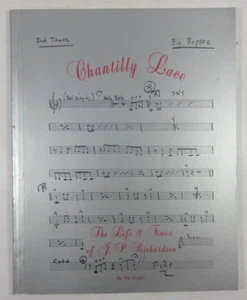 2nd Tenor
Big Bopper
Chantilly Lace
The Life & Times
of J. P. Richardson
By Tim Knight
Coda